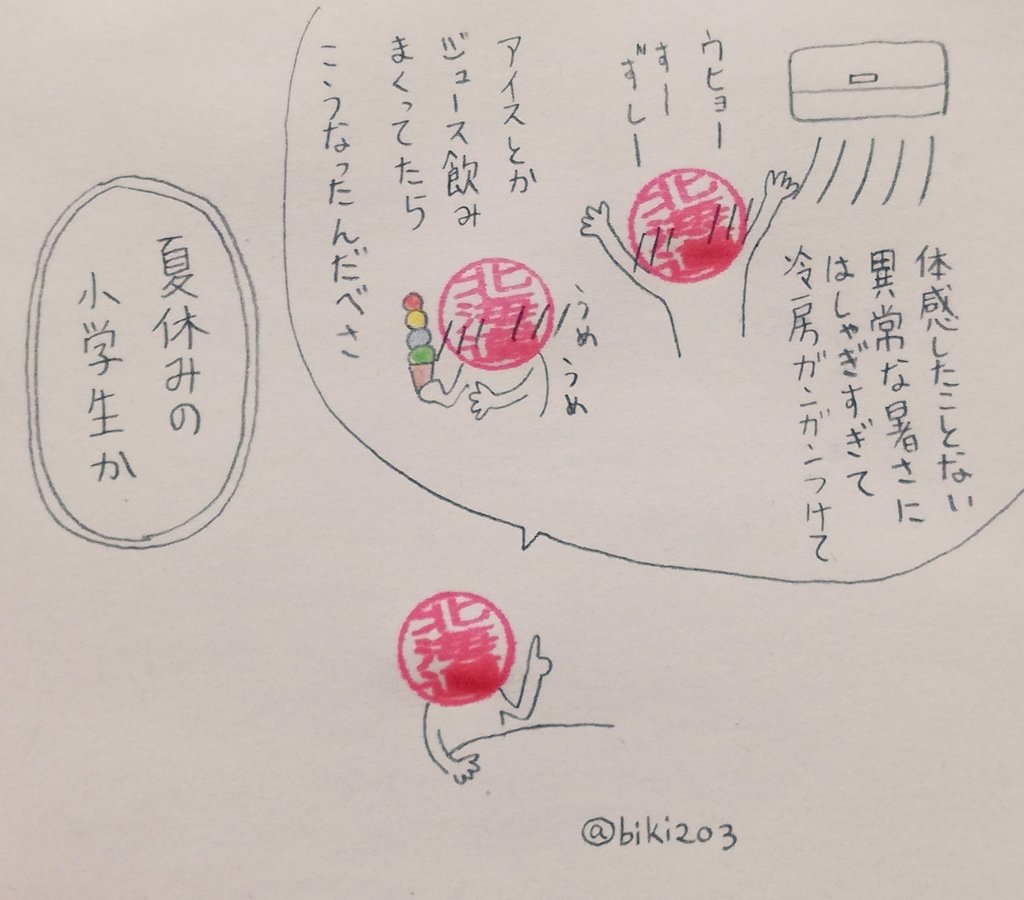 体感したことない
異常な暑さに
はしゃぎすぎて
冷房ガンガンつけて
ウヒョー
すー
ずしー
北海
アイスとか
ジュース飲み
まくってたら
こうなったんだべさ
うめ
うめ
北海
夏休みの
小学生か
北海
@biki203